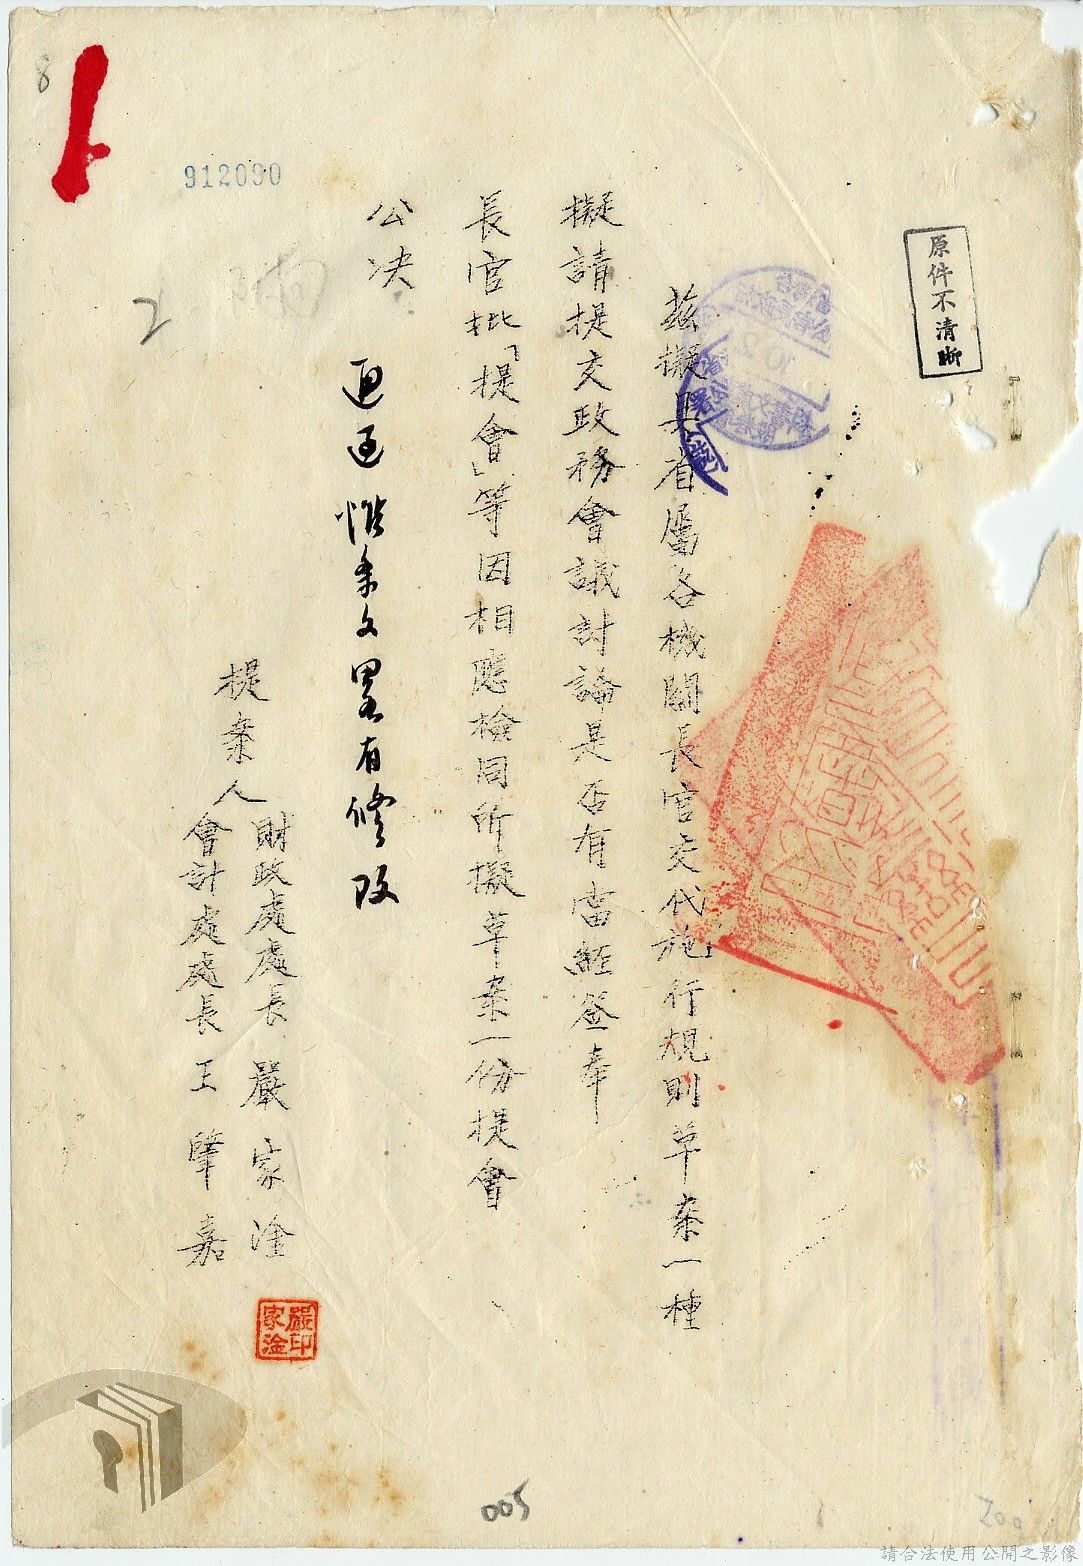 8
912090
原件不清晰
茲擬具省屬各機關長官交代施行規則草案一種
擬請提交政務會議討論是否有當經簽奉
長官批「提會」等因相應檢同所擬草案一份提會
公決
通過惟条文畧有修改
提案人
財政處處長 嚴家淦
會計處處長 王肇嘉
嚴家淦印
2
005
200
請合法使用公開之影像